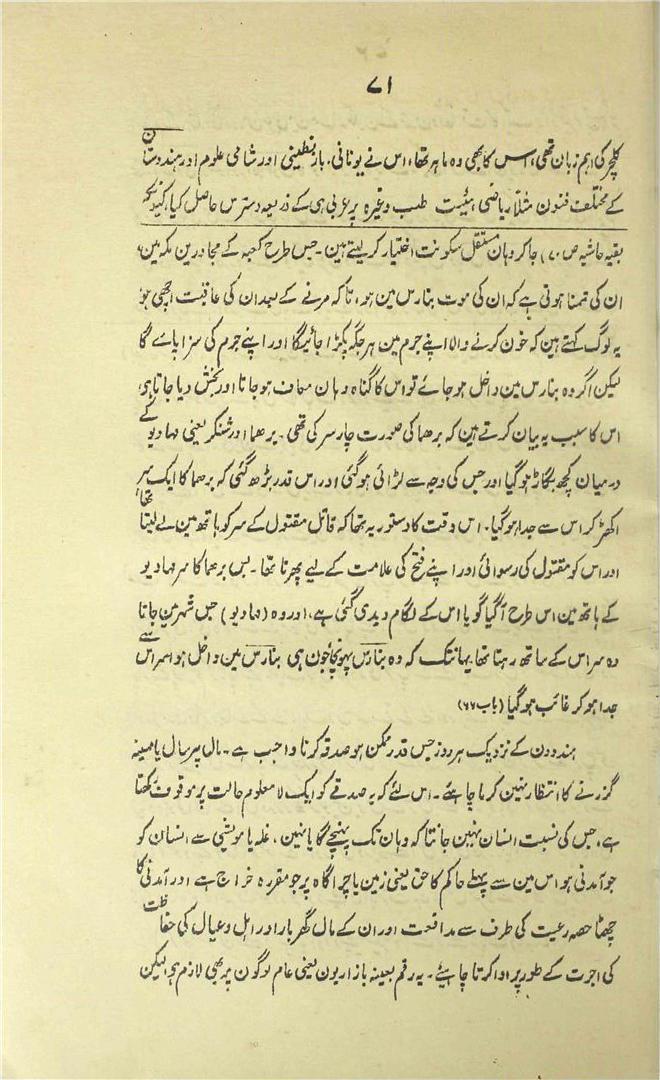 ۷۱
کلچر کی اہم زبان تھی، اس کا بھی وہ ماہر تھا، اس نے یونانی، بازنطینی اور شامی علوم اور ہندوستان
کے مختلف فنون مثلاً ریاضی، ہیئیت طب وغیرہ پر عربی ہی کے ذریعہ دسترس حاصل کیا، کیونکہ
بقیہ حاشیہ ص ۷۰) جا کر وہان مستقل سکونت اختیار کر لیتے ہین ۔ جس طرح کعبہ کے مجاورین مکہ مین،
ان کی تمنا ہوتی ہے کہ ان کی موت بنارس مین ہو، تاکہ مرنے کے بعد ان کی عاقبت اچھی ہو
یہ لوگ کہتے ہین کہ خون کرنے والا اپنے جرم مین ہر جگہ پکڑا جائیگا اور اپنے جرم کی سزا پائے گا
لیکن اگر وہ بنارس مین داخل ہو جائے تو اس کا گناہ وہان معاف ہو جاتا اور بخش دیا جاتا ہی،
اس کا سبب یہ بیان کرتے ہین کہ برھما کی صورت چار سر کی تھی ۔ برھما اور شنکر یعنی مہادیو کے
درمیان کچھ بگاڑ ہو گیا اور جس کی وجہ سے لڑائی ہو گئی اور اس قدر بڑھ گئی کہ برھما کا ایک سر
اکھڑ کر اس سے جدا ہو گیا ۔ اس وقت کا دستور یہ تھا کہ قاتل مقتول کے سر کو ہاتھ مین لے لیتا تھا
اور اس کو مقتول کی رسوائی اور اپنے فتح کی علامت کے لیے پھرتا تھا ۔ بس برھما کا سر مہادیو
کے ہاتھ مین اس طرح آ گیا گویا اس کے لگام دیدی گئی ہے، اور وہ (مہادیو) جس شہر مین جاتا
وہ سر اس کے ساتھ رہتا تھا یہانتک کہ وہ بنارس پہونچا جون ہی بنارس مین داخل ہوا سر اس سے
جدا ہو کر غائب ہو گیا (باب ۶۶)
ہندوؤن کے نزدیک ہر روز جس قدر ممکن ہو صدقہ کرنا واجب ہے ۔ مال پر سال یا مہینہ
گزرنے کا انتظار نہین کرنا چاہئے ۔ اس لئے کہ یہ صدقے کو ایک لا معلوم حالت پر موقوف رکھتا
ہے، جس کی نسبت انسان نہین جانتا کہ وہان تک پہنچے گا یا نہین، غلہ یا مویشی سے انسان کو
جو آمدنی ہو اس مین سے پہلے حاکم کا حق یعنی زمین یا چراگاہ پر جو مقررہ خراج ہے اور آمدنی کا
چھٹا حصہ رعیت کی طرف سے مدافعت اور ان کے مال گھر بار اور اہل و عیال کی حفاظت
کی اجرت کے طور پر ادا کرنا چاہیئے ۔ یہ رقم بعینہ بازاریون یعنی عام لوگون پر بھی لازم ہو لیکن